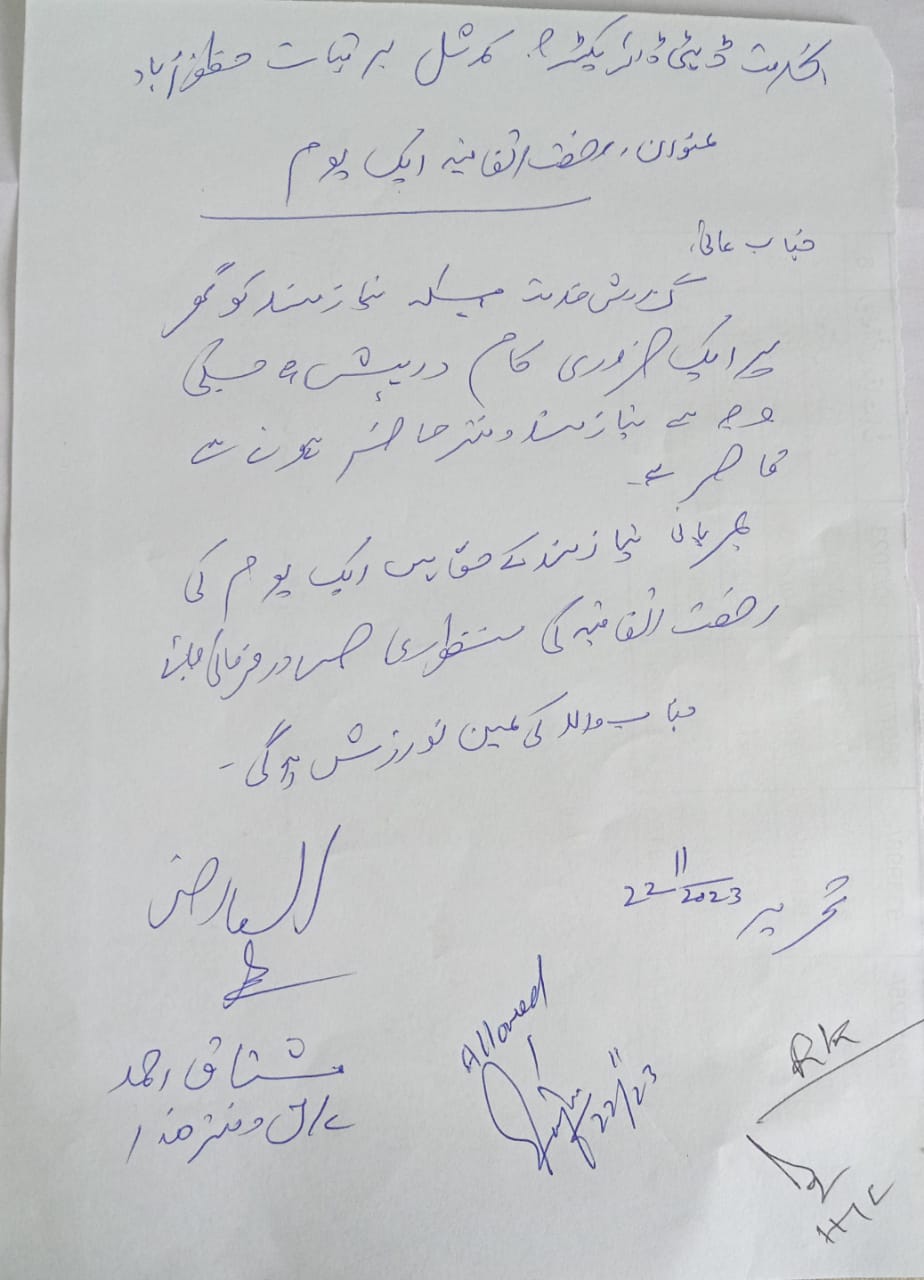 بخدمت ڈپٹی ڈائریکٹر کمرشل برقیات مظفرآباد
عنوان، رخصت اتفاقیہ ایک یوم
جناب عالی،
گزارش خدمت ہیکہ نیازمند کو گھر
پر ایک ضروری کام درپیش ہے جسکی
وجہ سے نیازمند دفتر حاضر ہونے سے
قاصر ہے۔
مہربانی نیازمند کے حق میں ایک یوم کی
رخصت اتفاقیہ کی منظوری صادر فرمائی جائے
جناب والا کی عین نوازش ہوگی -
العارض
تحریر 22 11/2023
مشتاق احمد
دفتر ھذا
Allowed
22/11/23
RK